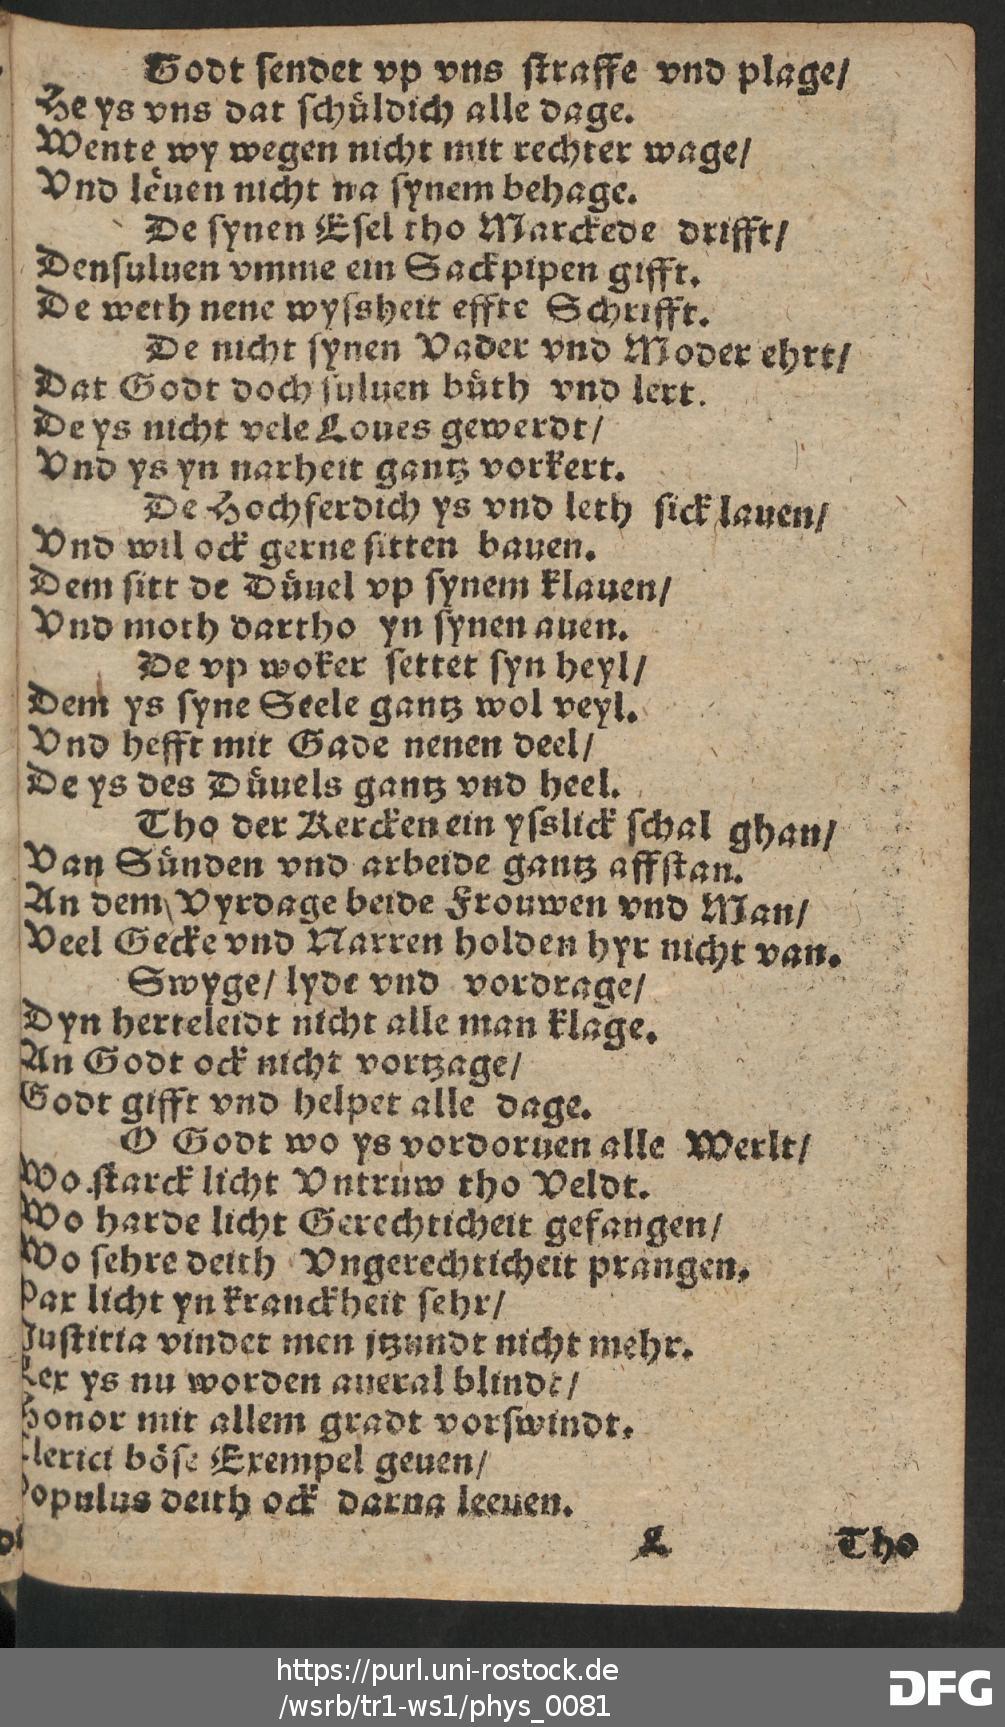 Godt sendet vp vns straffe vnd plage/
He ys vns dat schüldich alle dage.
Wente wy wegen nicht mit rechter wage/
Vnd leuen nicht na synem behage.
De synen Esel tho Marckede drifft/
Densuluen vmme ein Sackpipen gifft.
De weth nene wyssheit effte Schrifft.
De nicht synen Vader vnd Moder ehrt/
Dat Godt doch suluen büth vnd lert.
De ys nicht vele Loues gewerdt/
Vnd ys yn narheit gantz vorkert.
De Hochferdich ys vnd leth sick lauen/
Vnd wil ock gerne sitten bauen.
Dem sitt de Düuel vp synem klauen/
Vnd moth dartho yn synen auen.
De vp woker settet syn heyl/
Dem ys syne Seele gantz wol veyl.
Vnd hefft mit Gade nenen deel/
De ys des Düuels gantz vnd heel.
Tho der Kercken ein ysslick schal ghan/
Van Sünden vnd arbeide gantz affstan.
An dem Vyrdage beide Frouwen vnd Man/
Veel Gecke vnd Narren holden hyr nicht van.
Swyge/ lyde vnd vordrage/
Dyn herteleidt nicht alle man klage.
An Godt ock nicht vortzage/
Godt gifft vnd helpet alle dage.
O Godt wo ys vordoruen alle Werlt/
Wo starck licht Vntruw tho Veldt.
Wo harde licht Gerechticheit gefangen/
Wo sehre deith Vngerechticheit prangen.
Pax licht yn kranckheit sehr/
Justitia vindet men jtzundt nicht mehr.
Lex ys nu worden aueral blindt/
Honor mit allem gradt vorswindt.
Clerici böse Exempel geuen/
Populus deith ock darna leeuen.
L Tho
https://purl.uni-rostock.de
/wsrb/tr1-ws1/phys_0081
DFG